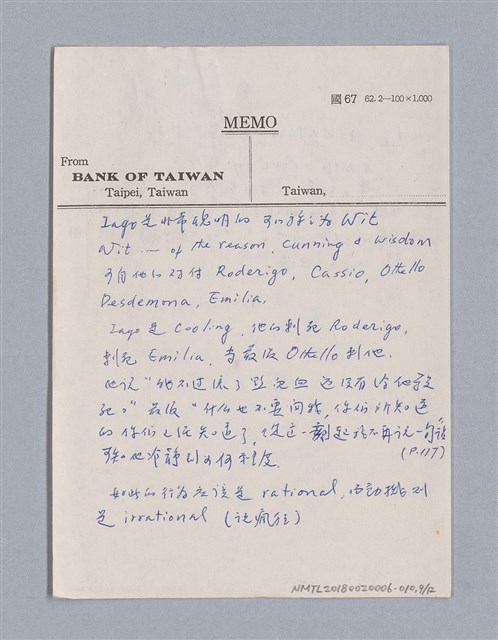 國67 62.2—100×1,000
MEMO
From
BANK OF TAIWAN
Taipei, Taiwan
Taiwan,
Iago是非常聰明的 可以說之為 Wit
Wit — of the reason, cunning & wisdom
可自他的对付 Roderigo, Cassio, Othello
Desdemona, Emilia,
Iago 是 Cooling, 他的刺死 Roderigo,
刺死 Emilia, 最後 Othello 刺他.
他说"我不过流了血 还没有
死。" 最後 "什么也不要问我, 你们所知道
的你们已经知道了, 從這一刻起我不再说一句话"
他冷静到如何程度. (P.117)
如此的行為应该是 rational, 而動機則
是 irrational (说疯狂)
NMTL20180020006-010,9/12